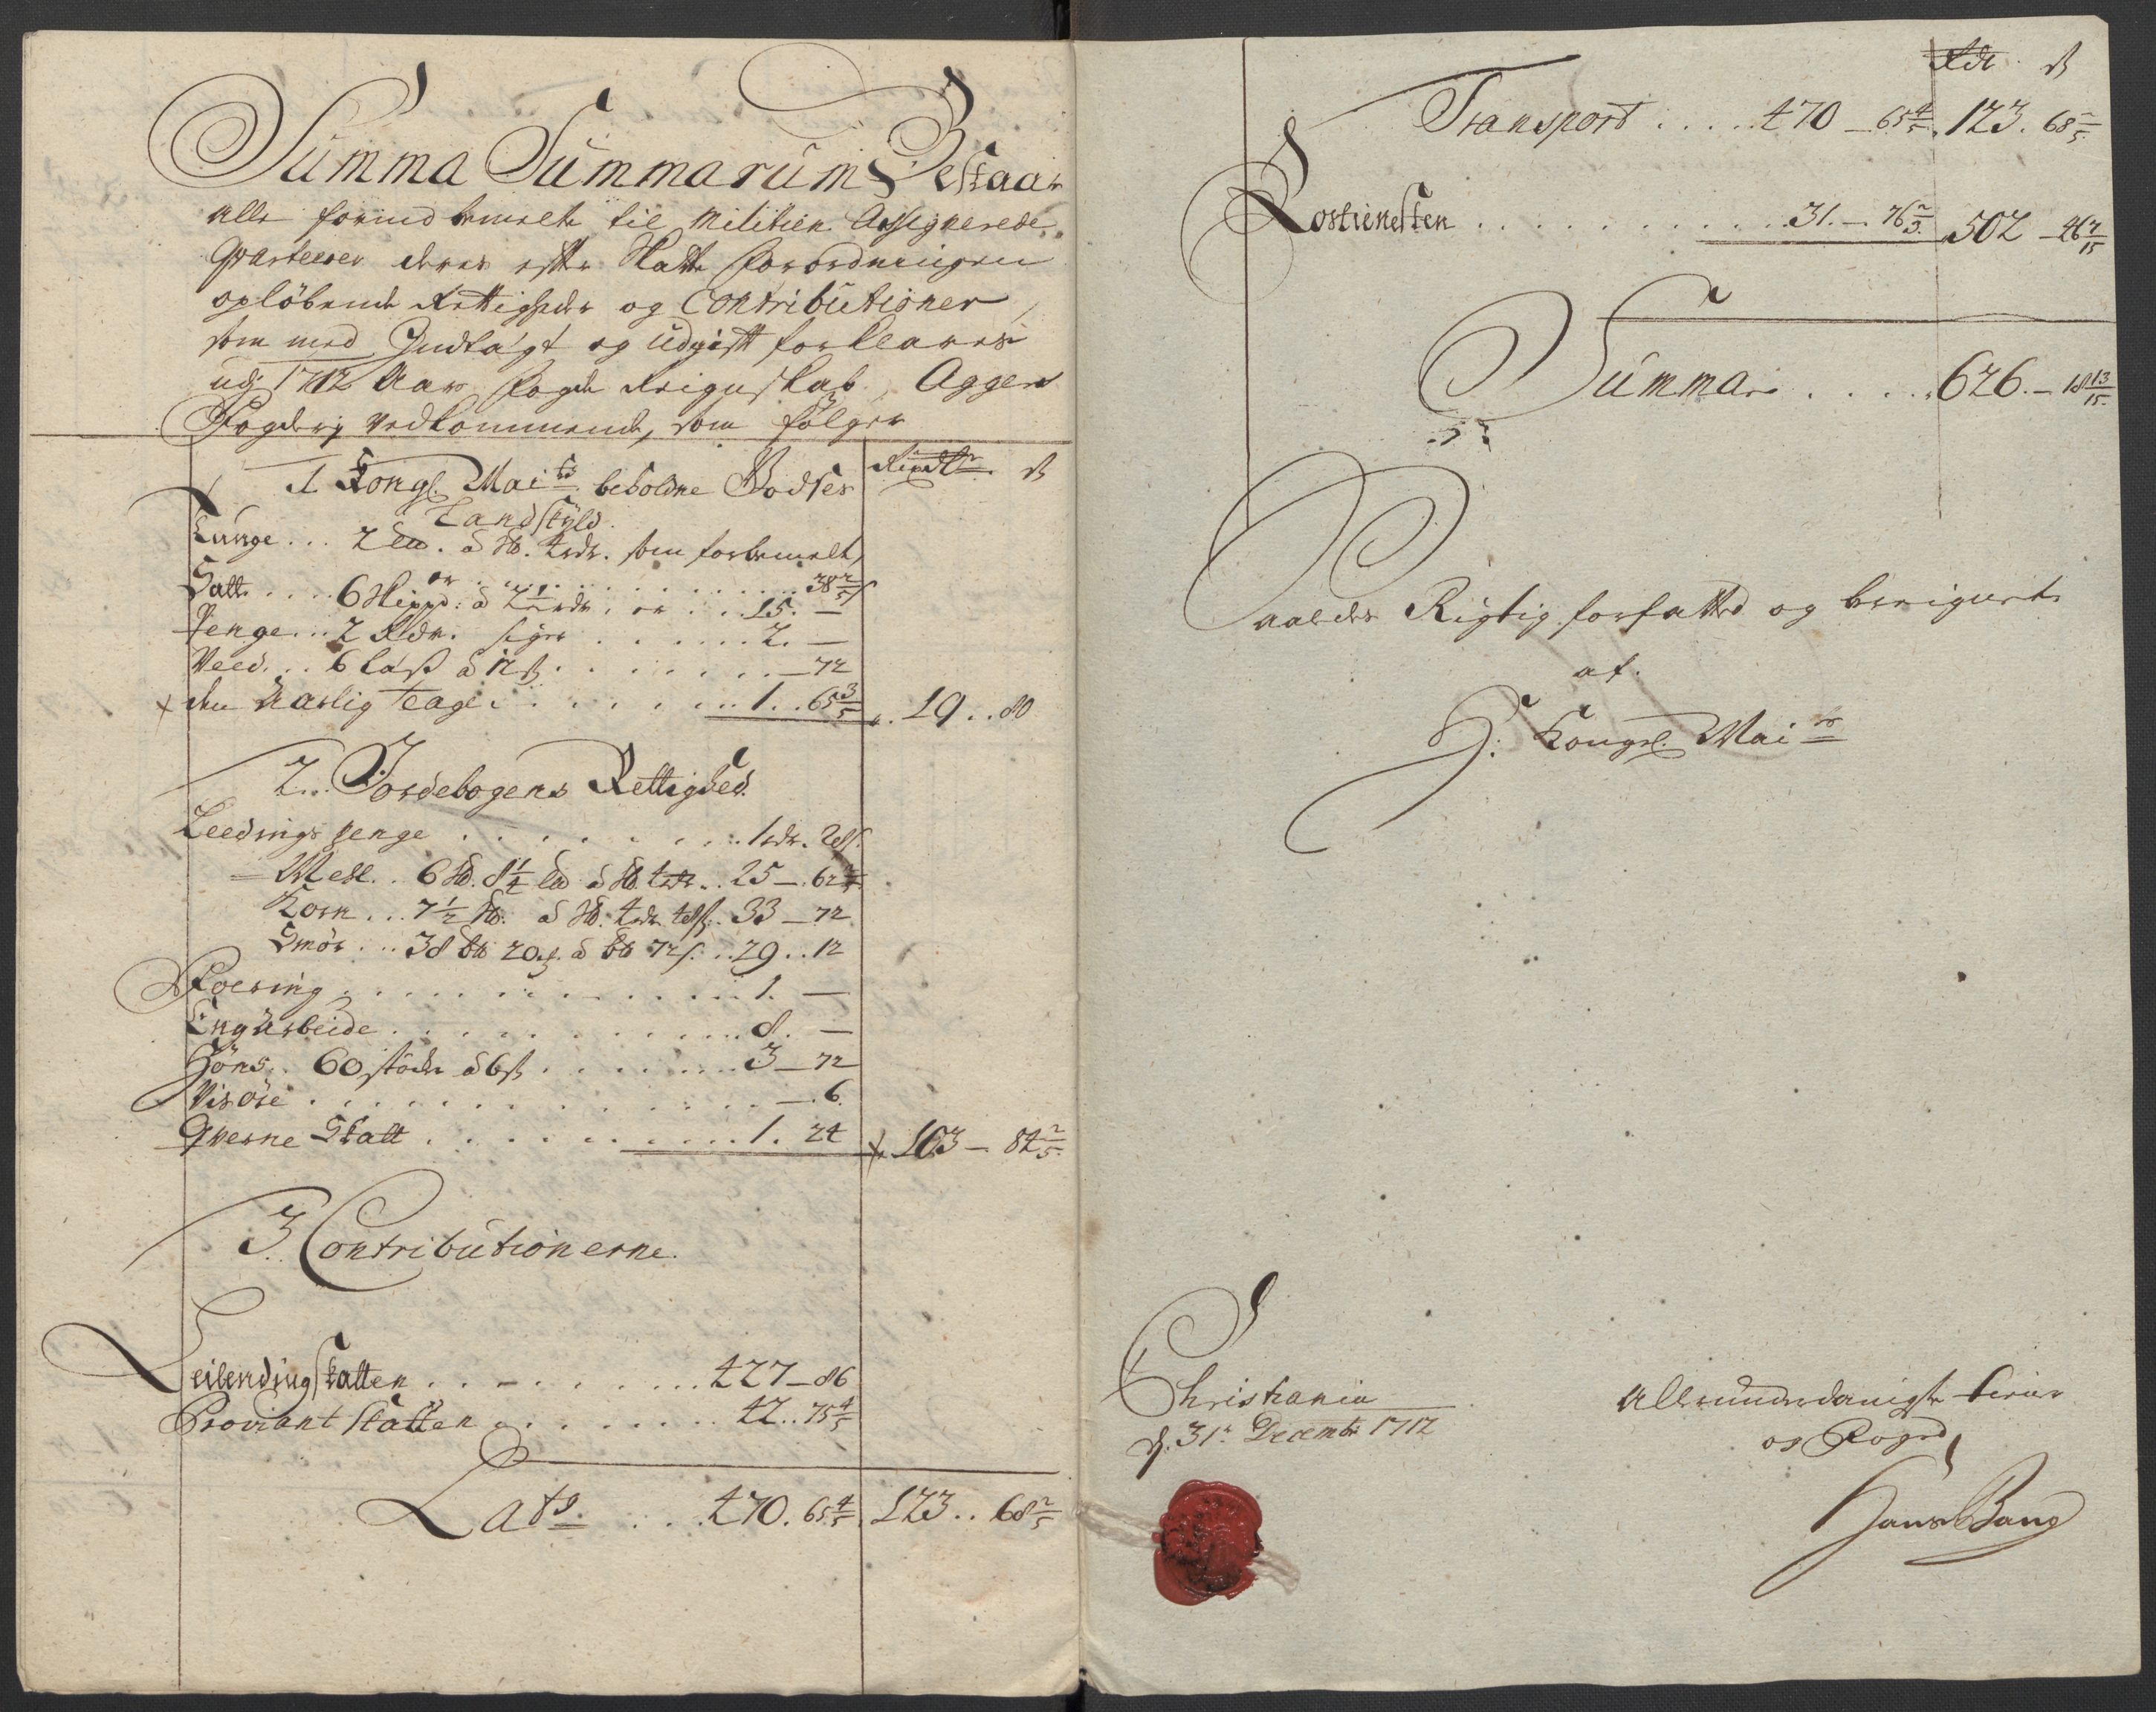 Summa Summarum Bestaar
alle forindbemelte til Militien Assignerede
Qvarteerer deres efter Skatte forordningen
opløbende Rettigheder og Contributioner
som med Indtægt og udgift forklares
udj 1712 Aars fogde Reigenskab, Aggers
Fogderj vedkommende, som følger
Rixdlr ß
1 Kongl. Maits beholdne Bodsel
Landskyld
Tunge... 2 Lis. à Sk. 4 rdr. som forbemelt,
er ... 38 2/5 ß
Salt.... 6 Skippd: à 2 1/2 rdr. er ... 15. —
Penge... 2 Rdr. siger ..... 2. —
Veed... 6 læss à 12 ß ...... — 72
den Aarlig Tage ...... 1.. 65 3/5 19.. 80
2. Jordebogens Rettighed
Leedings penge ........ 1 rdr. 28 ß.
— Meel.. 6 Sk. 8 1/4 Lis à Sk. 4 rdr.. 25 — 62 2/5
Korn... 7 1/2 Sk. à Sk. 4 rdr 48 ß. 33 — 72
Smør... 38 bb 20 à bb 72 ß... 29.. 12
Foering ............ 1. —
Engarbeide ........... 8. —
Høns.. 60 støcker à 6 ß ....... 3 — 72
Visøre .............. — 6.
Qverne Skatt .......... 1. 24 103 — 84 2/5
3. Contributionerne.
Leilendingskatten ......... 427 — 86
Proviant skatten ....... 42.. 75 4/5
Lats. ... 470. 65 4/5. 123.. 68 2/5
Rdr ß
Transport .... 470 — 65 4/5. 123. 68 2/5
Rostienesten ............ 31. — 76 2/3. 502 — 46 7/15
Summa .... 626. — 18 13/15
Saaledes Rigtig forfatted og beregnet
af.
H: Kongl. Maits
Christiania
d. 31t Decembr 1712
Allerunderdanigste tiener
og Foged
Hans Bang